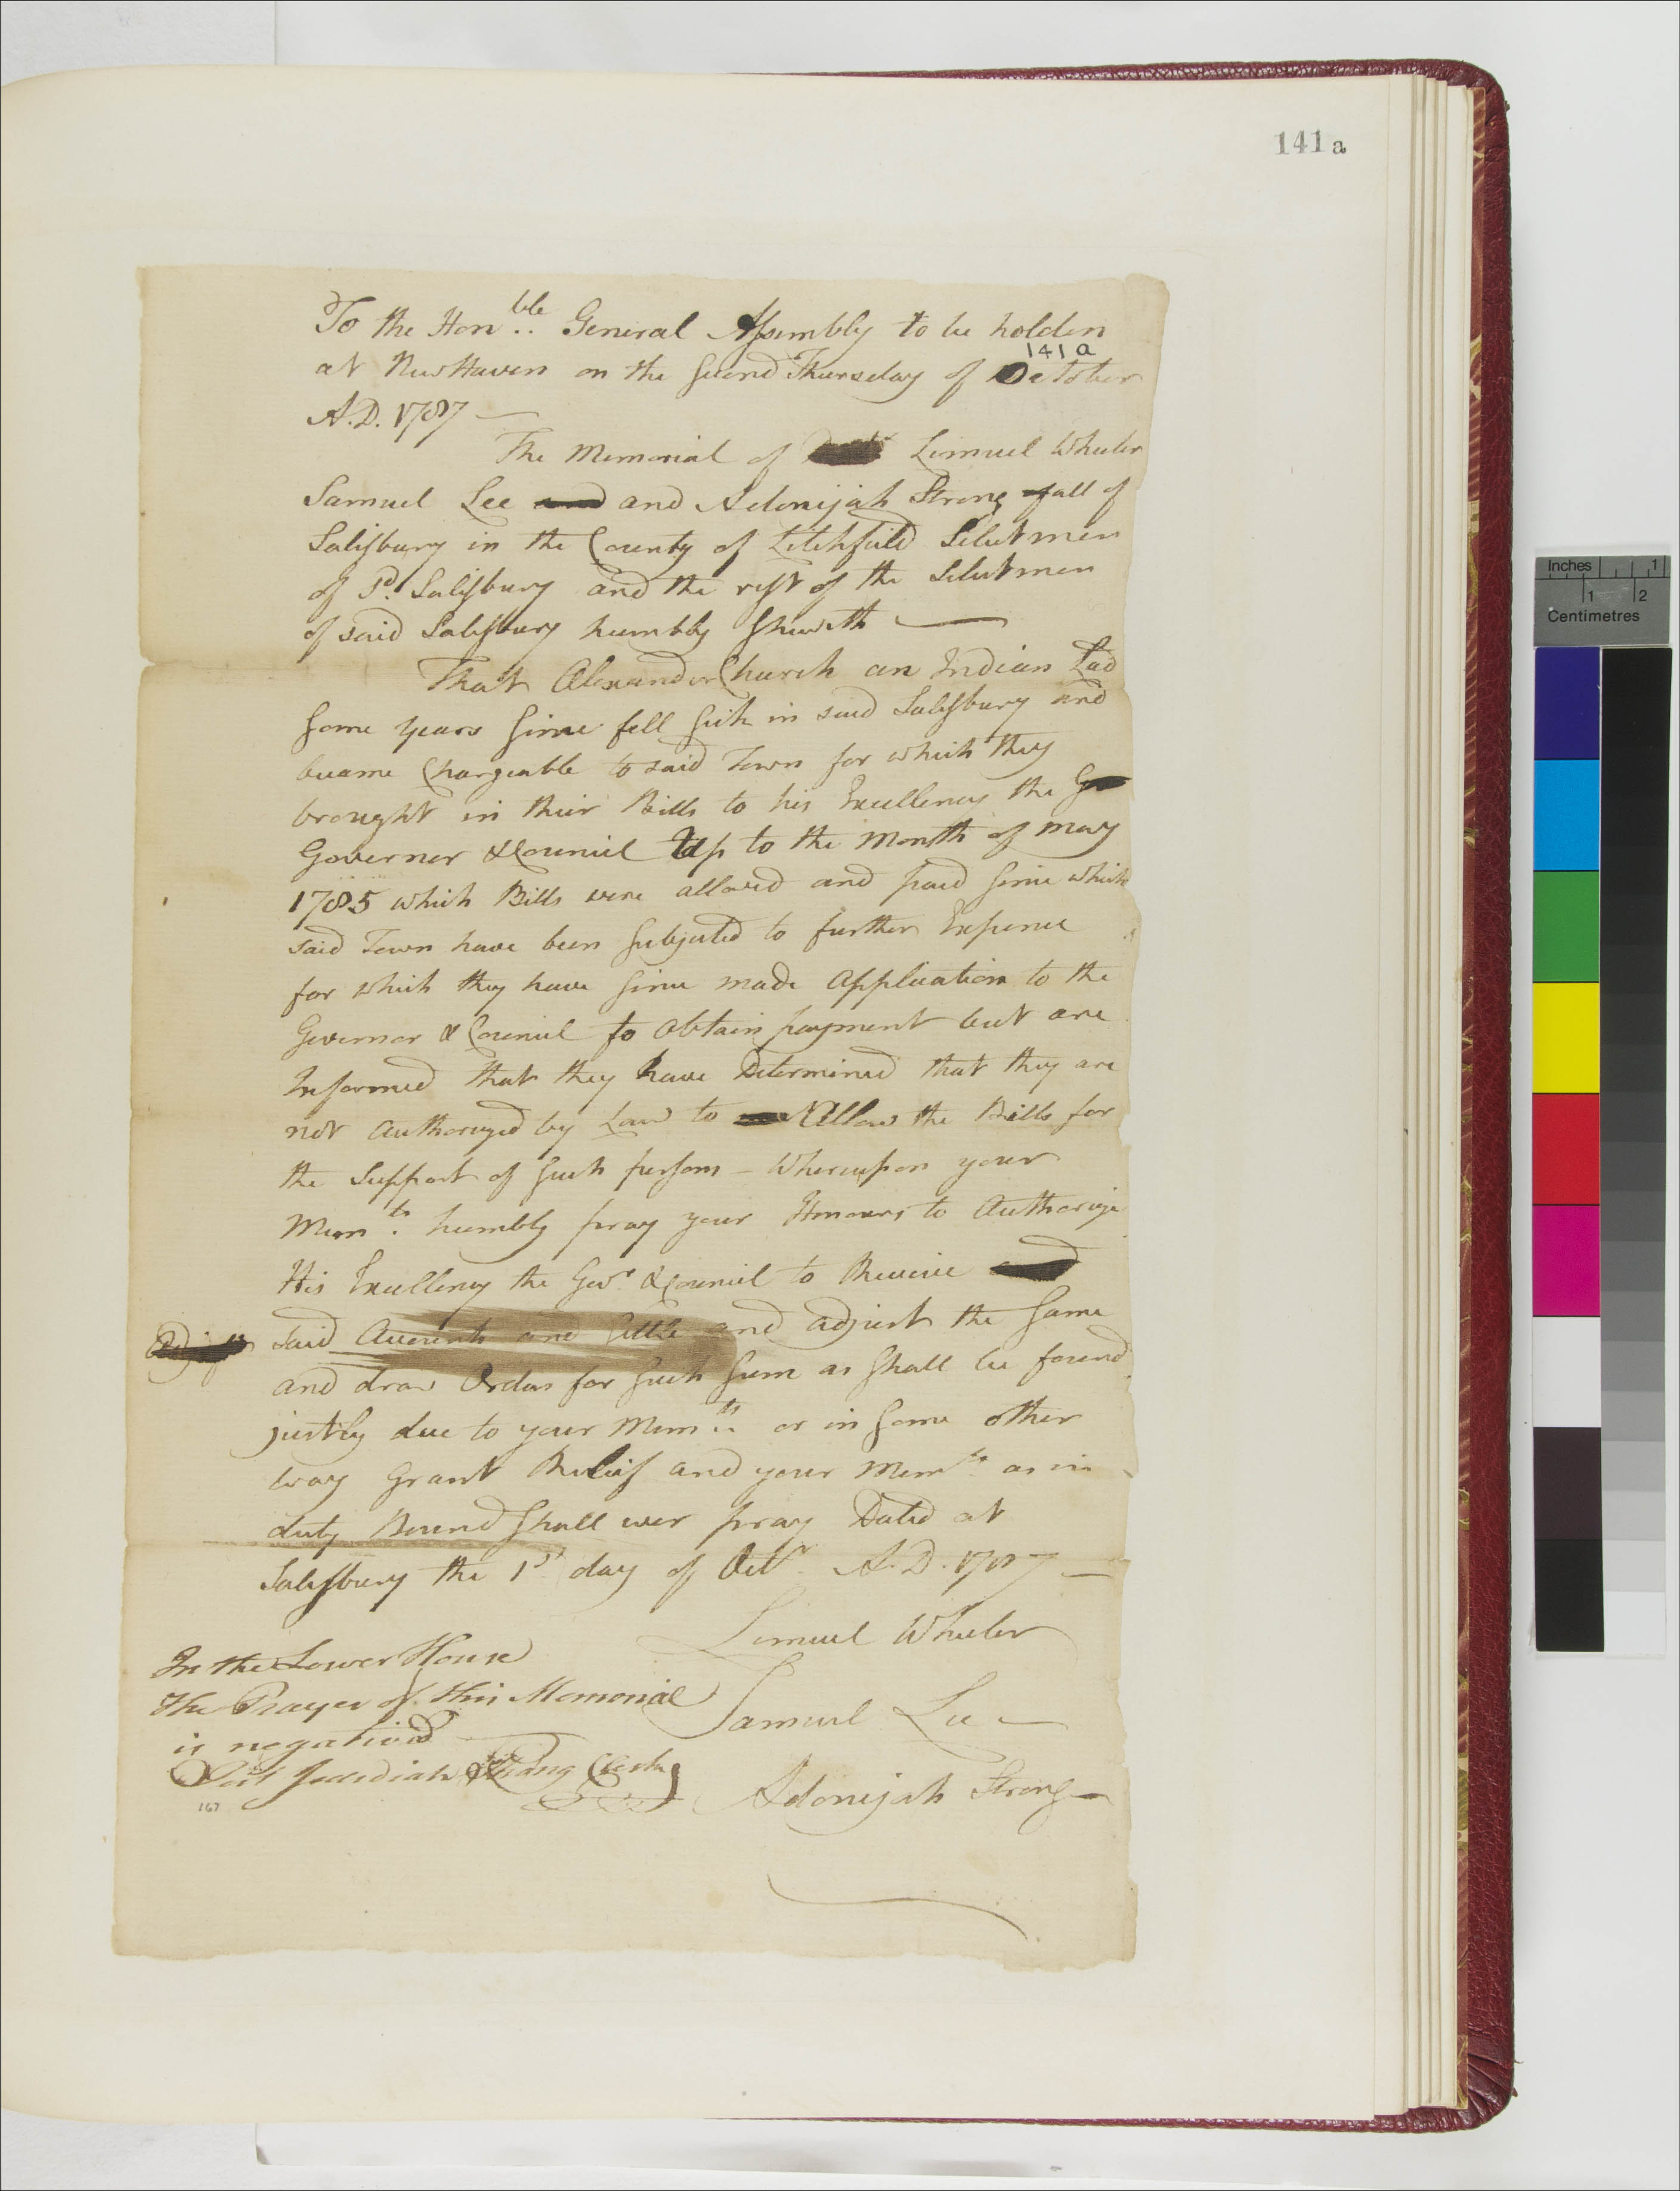 141a
To the Hon.ble General Assembly to be holden
141 a
at New Haven on the Second Thursday of October
A.D. 1787 —
The Memorial of Lemuel Wheeler
Samuel Lee and and Adonijah Strong all of
Salisbury in the County of Litchfield Selectmen
of Sd. Salisbury and the rest of the Selectmen
of said Salisbury humbly Sheweth —
That Alexander Church an Indian Lad
Some years Since fell Sick in said Salisbury and
became Chargeable to said Town for which they
brought in their Bills to his Excellency the
Governor & Council Up to the Month of May
1785 which Bills were allowed and paid Since which
said Town have been Subjected to further Expence
for which they have Since made Application to the
Governor & Council to obtain payment but are
Informed that they have Determined that they are
not Authorized by Law to Allow the Bills for
the Support of Such persons – Whereupon your
Mem.ts humbly pray your Honours to Authorize
His Excellency the Gov.r & Council to Receive and
Adjust said Accounts and Settle and adjust the Same
and draw Orders for Such Sum as Shall be found
justly due to your Mem.ts or in Some other
way Grant Relief and your Mem.ts as in
duty Bound Shall ever pray Dated at
Salisbury the 1st day of Octr. A.D. 1787 —
Lemuel Wheeler
Samuel Lee —
Adonijah Strong
In the Lower House
The Prayer of this Memorial
is negatived
Test Jedediah Strong Clerk
167
Inches 1
1 2
Centimetres